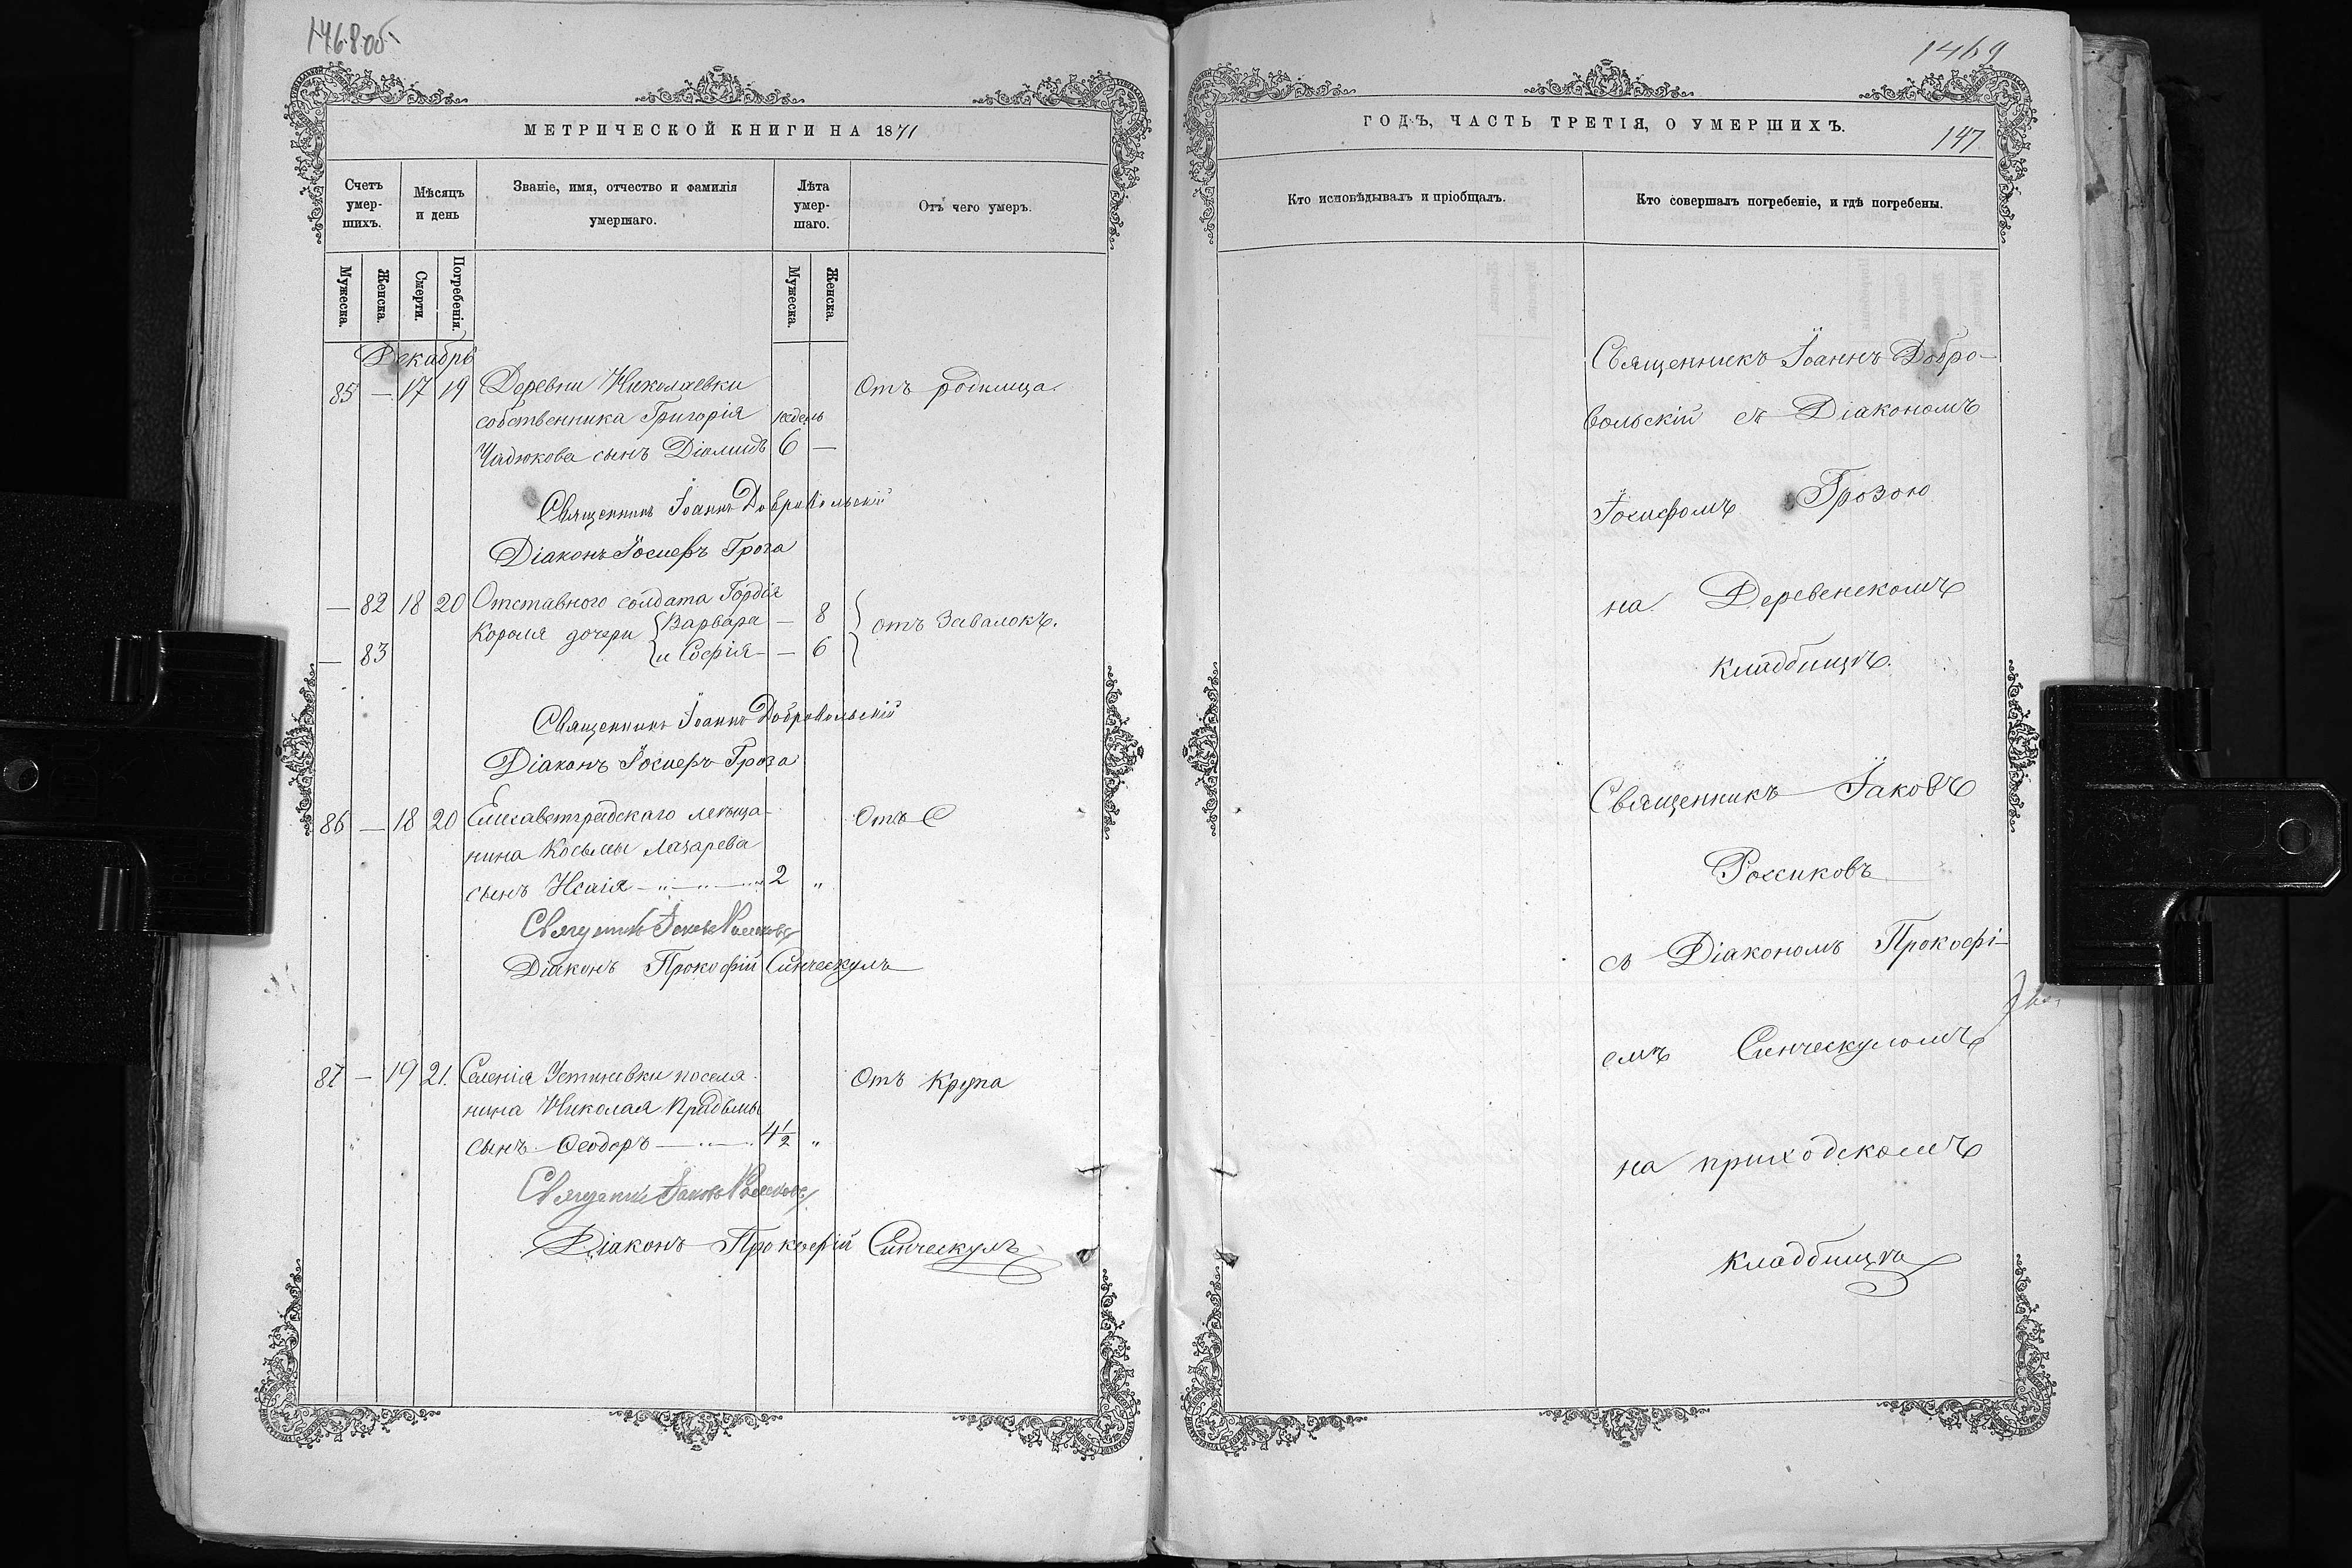 1468 об
МЕТРИЧЕСКОЙ КНИГИ НА 1871
Счетъ умер-шихъ.
Мѣсяцъ и день
Званіе, имя, отчество и фамилія умершаго.
Лѣта умер-шаго.
Отъ чего умеръ.
Мужеска.
Женска.
Смерти.
Погребенія.
Мужеска.
Женска.
Декабрь
85 — 17 19 Деревни Николаевки Отъ родимца.
собственника Григорія недель
Чадюкова сынъ Діомидъ 6 —
Священникъ Іоаннъ Добровольскій
Діаконъ Іосифъ Гроза
— 82 18 20 Отставного солдата Гордія
Короля дочери Варвара — 8 отъ Завалокъ.
— 83 и Софія — 6
Священникъ Іоаннъ Добровольскій
Діаконъ Іосифъ Гроза
86 — 18 20 Елисаветградскаго мѣща- Отъ С
нина Косьмы Лазарева
сынъ Исаія 2 „
Священникъ Іаковъ
Діаконъ Прокофій Синческулъ
87 — 19 21. Селенія Устиновки поселя- Отъ Крупа
нина Николая
сынъ Ѳеодоръ 4 1/2 „
Священникъ Іаковъ
Діаконъ Прокофій Синческулъ
1469
ГОДЪ, ЧАСТЬ ТРЕТІЯ, О УМЕРШИХЪ.
147
Кто исповѣдывалъ и пріобщалъ.
Кто совершалъ погребеніе, и гдѣ погребены.
Священникъ Іоаннъ Добро-
вольскій съ Діакономъ
Іосифомъ Грозою
на Деревенскомъ
кладбищѣ.
Священникъ Іаковъ
съ Діакономъ Прокофі-
емъ Синческуломъ
на приходскомъ
кладбищѣ